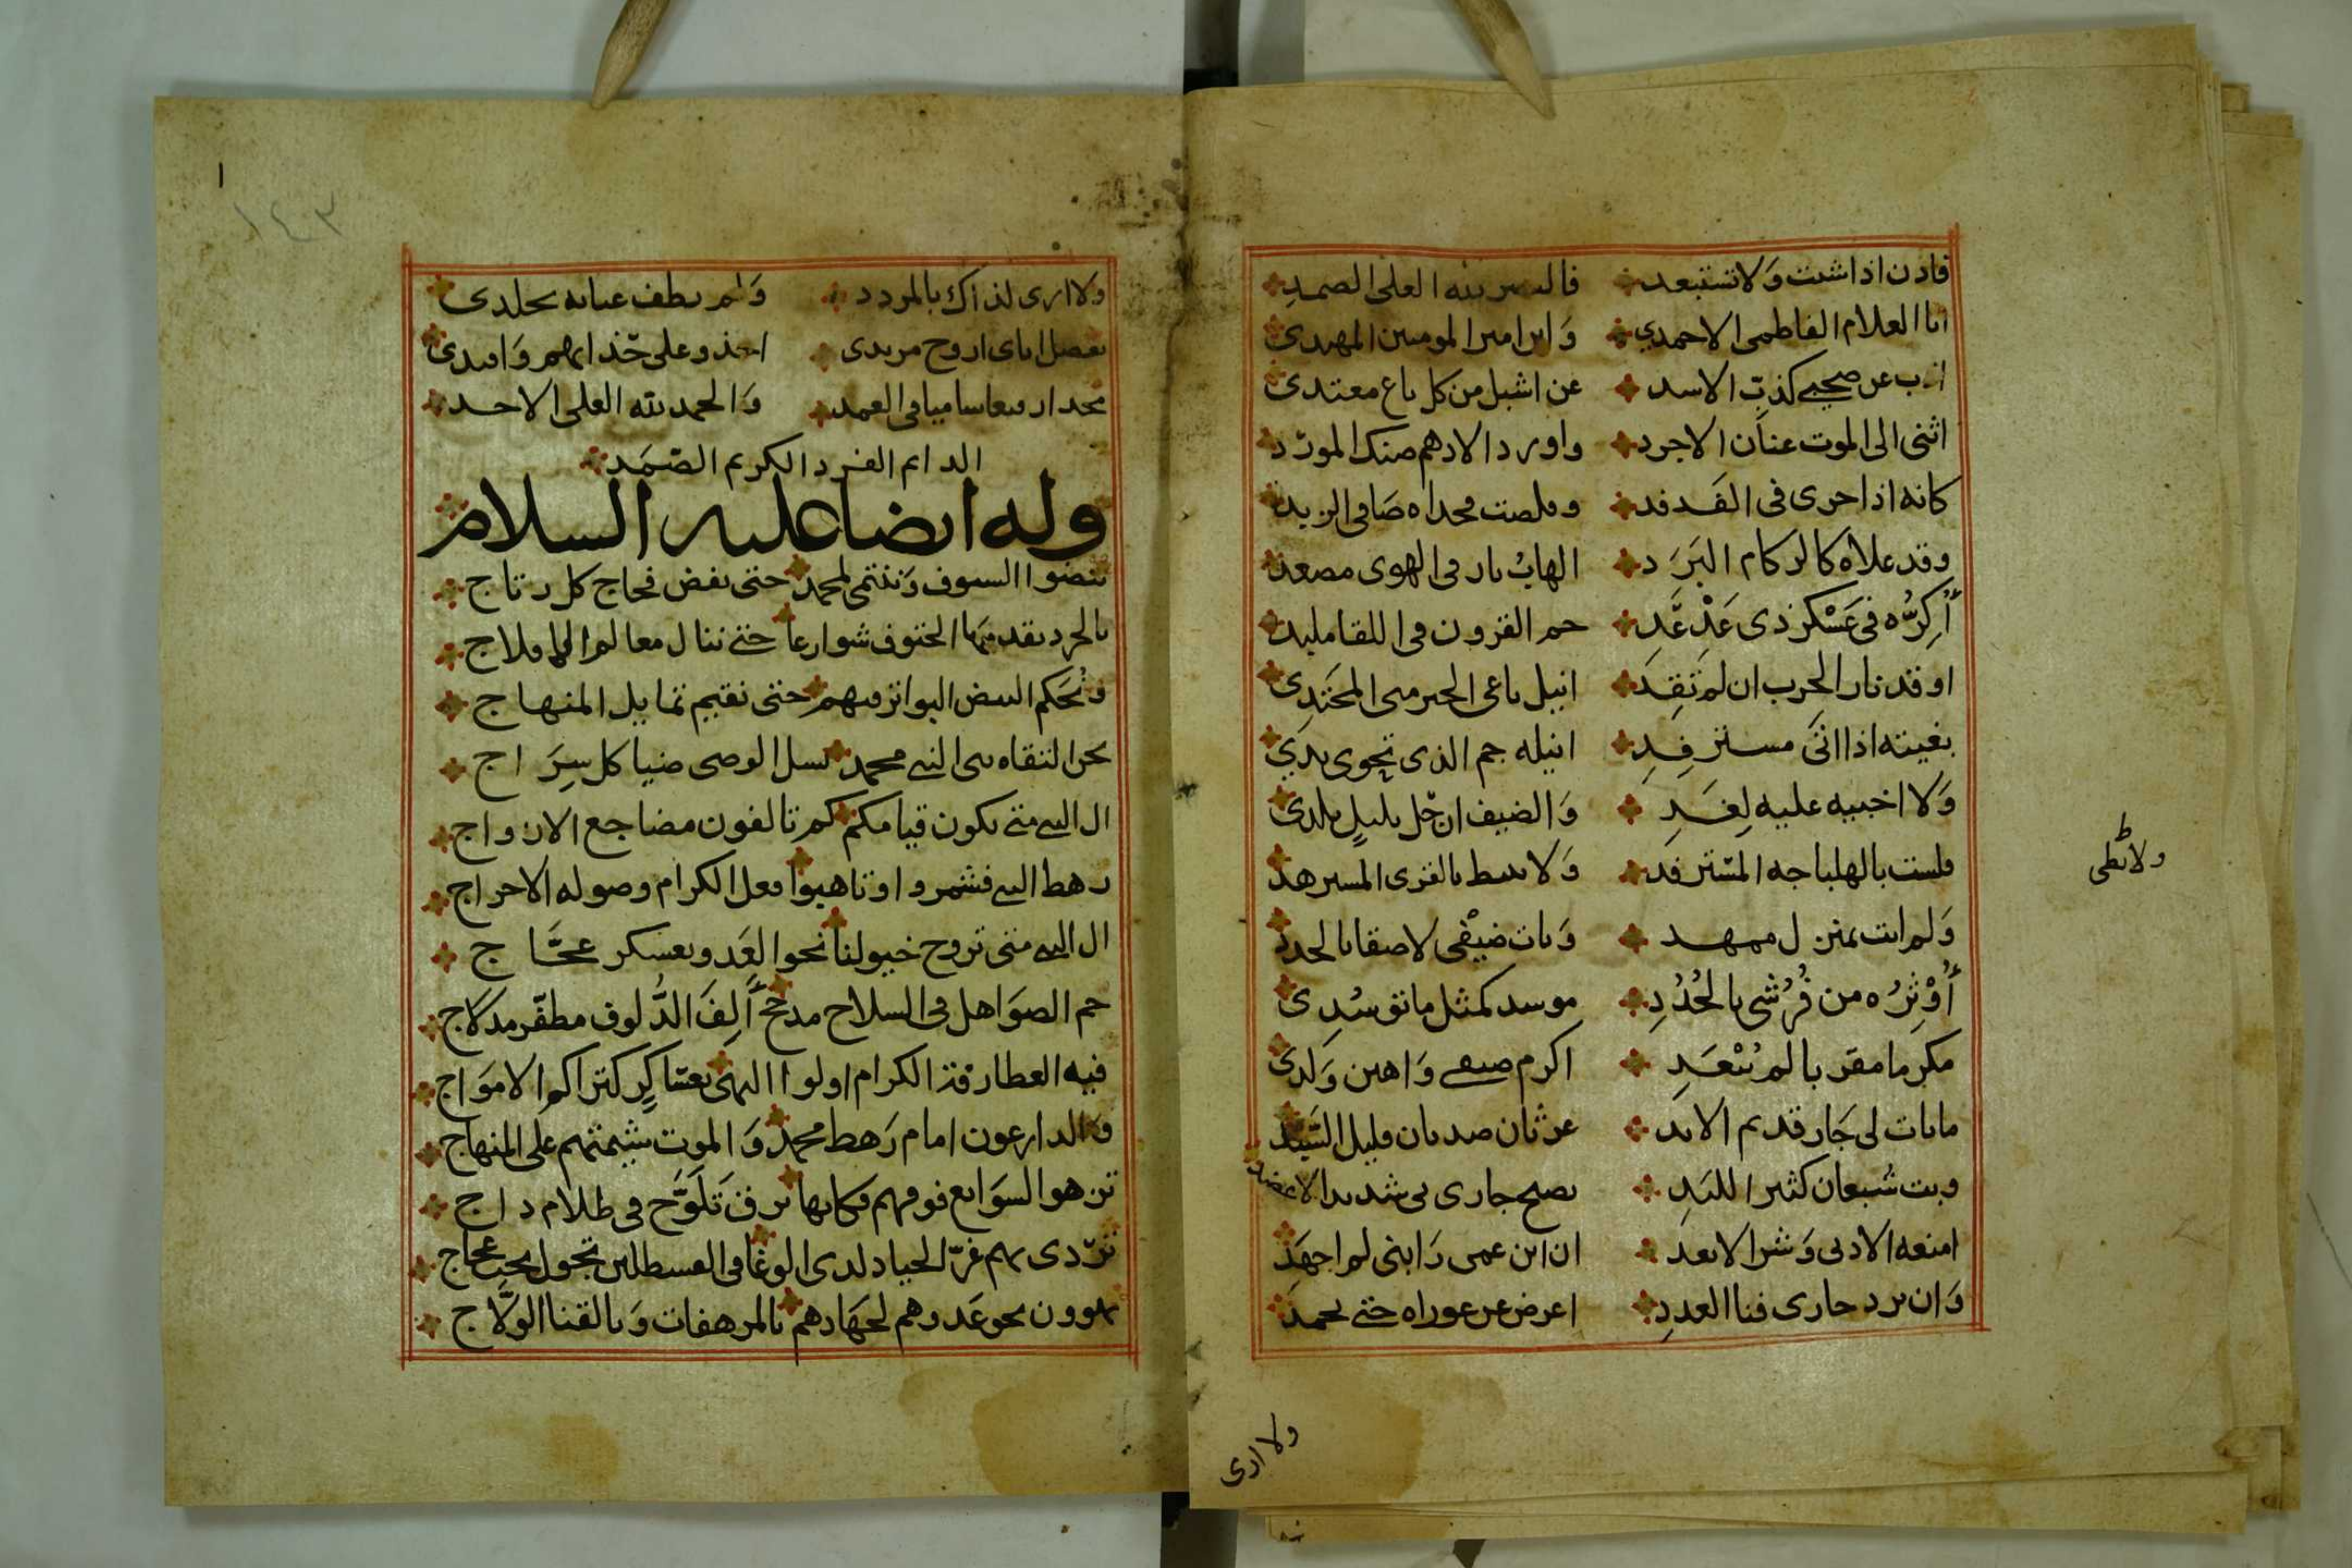 فادن اذا شئت وَلا تستبعد فاليسر لله العلى الصمدِ
انا العلام الفاطمى الاحمدي وَابن امير المومنين المهتدى
اذب عن صحبي كذبّ الاسد عن اشبل من كل باغ معتدى
اثنى الى الموت عنان الاجرد واورد الادهم ضنك المورد
كانه اذا جرى فى الفدفد وقلصت مجداه صَافى الزبد
وقد علاه كالركام البَرَد الهابُ نار فى الهوى مصعد
أُكِرُّه فى عَسْكر ذى عَدْعَدِ جم القرون فى اللقا ملبد
اوقد نار الحرب ان لم تَقِدَ انيل باغى الخير منى المجتَدِى
بغيته اذا اتى مسترفِدِ انيله جم الذى تحوى يدي
وَلا اخيبه عليه لِغَدِ وَالضيف ان حَل بليلٍ بلدى
فلست بالهلباجه المسترفد وَلا نبيط بالقرى المسرهد
وَلم ابت بمنزل ممهد وَبات ضيْفى لاصقا بالجدد
أُوْثِرُه من فُرُشى بالجُدُدِ موسد كمثل ما توسُدِى
مكرما مقربا لم يُبْعَدِ اكرم ضيفى وَاهين وَلدى
ما بات لى جَار قديم الابد غرثان صديان قليل السَّبد
وبت شبعان كثير اللبَدِ نصح جارى بى شديد الاعضد
امنعه الادنى وَشر الابعد ان ابن عمى رَابنى لم اجهَدْ
وَان يرد جارى فنا العددِ اعرض عن عوراه حتى يحمدَ
ولا نبطى
ولا ارى
١٤٣
ولا ارى لذاك بالمردد وَلم يطف عيابه بخلدى
بفضل اباى اروح مرتدى احذو على حَذائهم وَاقتدى
مجدا رفيعا ساميا فى العمد وَالحمد لله العلى الاحد
الدائم الفرد الكريم الصّمَد
وله ايضا عليه السلام
ننضوا السيوف وَننتمى لمحمد حتى نفض فجاج كل رتاج
بالجرد نقدمها الحتوف شوارعا حتى ننال معالم الافلاج
وَنُحَكم البيض البواتر فيهم حتى نقيم تمايل المنهاج
نحن التقاه بنى النبي محمد نسل الوصى ضيا كل سِرَاج
ال النبى متى يكون قيامكم كم تالفون مضاجع الازواج
رهط النبى فشمروا وتاهبوا فعل الكرام وصوله الاحراج
ال النبى متى تروح خيولنا نحو العَدو بعسكر عجَّاج
جم الصوَاهل فى السلاح مدجج ألِفَ الدُّلوف مظفّر مدلاج
فيه العطارفة الكرام اولوا النهى بعساكِر كتراكم الاموَاج
وَالدارعون امام رَهط محمد وَالموت شيمتهم على المنهاج
تزهوا السوَابغ فوقهم فكانها برق تَلَوَّح فى ظلام داج
تَرْدى بهم غرّ الجياد لدى الوغا فى القسطلين تجول تحت عجاج
يهوون نحو عَدوهم لجهَادهم بالمرهفات وَبالقنا الولَّاج